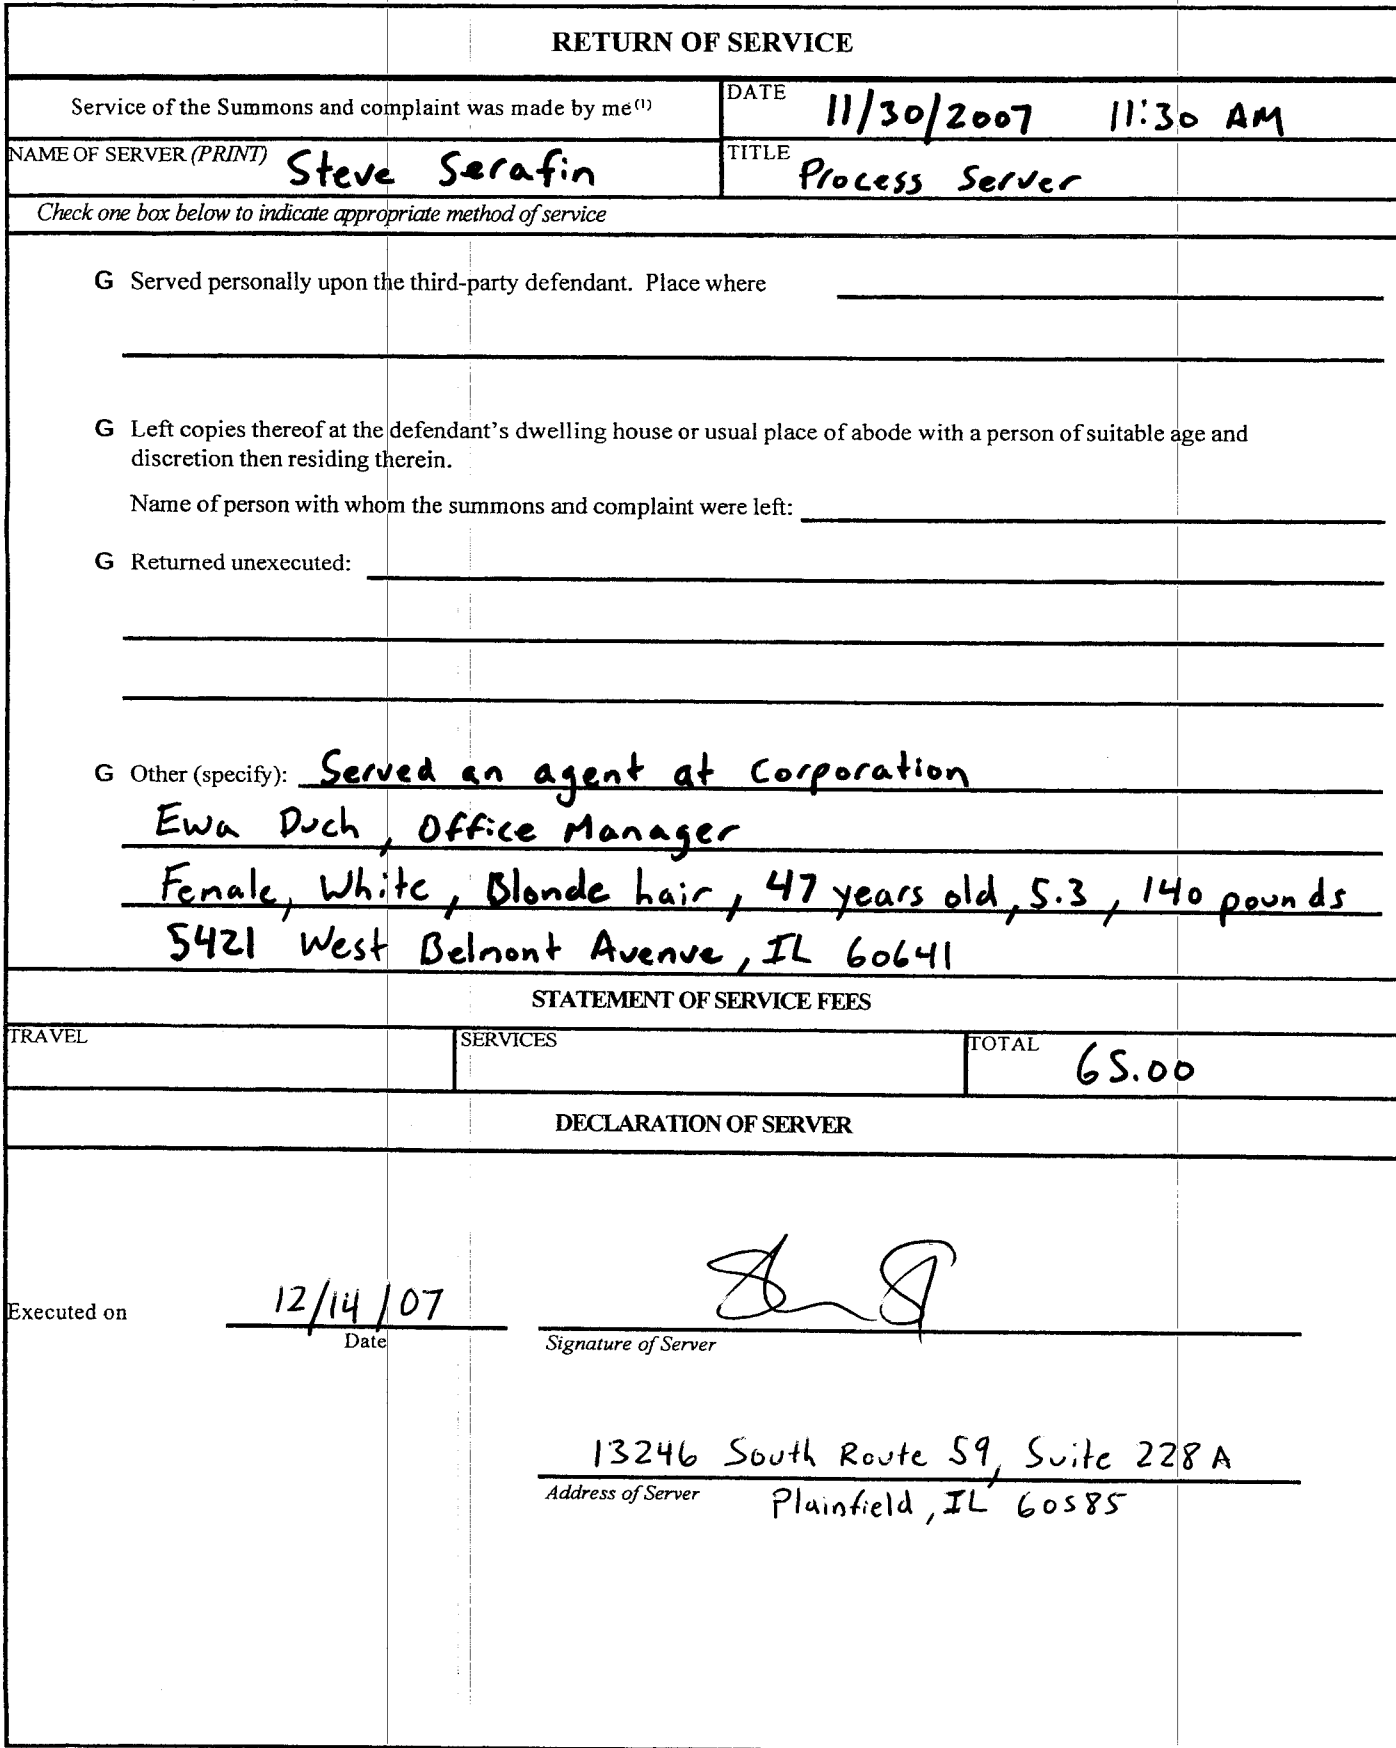 RETURN OF SERVICE
Service of the Summons and complaint was made by me(1)
DATE 11/30/2007 11:30 AM
NAME OF SERVER (PRINT) Steve Serafin
TITLE Process Server
Check one box below to indicate appropriate method of service
G Served personally upon the third-party defendant. Place where
G Left copies thereof at the defendant's dwelling house or usual place of abode with a person of suitable age and
discretion then residing therein.
Name of person with whom the summons and complaint were left:
G Returned unexecuted:
G Other (specify): Served an agent at Corporation
Ewa Duch, Office Manager
Female, White, Blonde hair, 47 years old, 5.3, 140 pounds
5421 West Belmont Avenue, IL 60641
STATEMENT OF SERVICE FEES
TRAVEL SERVICES TOTAL 65.00
DECLARATION OF SERVER
Executed on 12/14/07
Date Signature of Server
13246 South Route 59, Suite 228A
Address of Server Plainfield, IL 60585